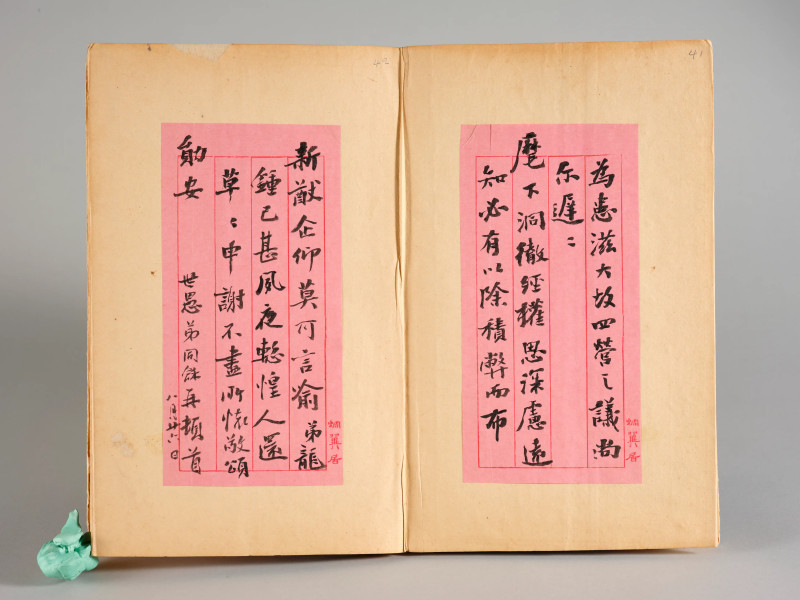 41
為患滋大故四營之議尚
尓遲〻
麾下洞徹經權思深慮遠
知必有以除積弊而布
居
42
新猷企仰莫可言喻弟龍
鍾已甚夙夜慙惶人還
草〻申謝不盡所懷敬頌
勛安
世愚弟同龢再頓首
八月廿六日
居